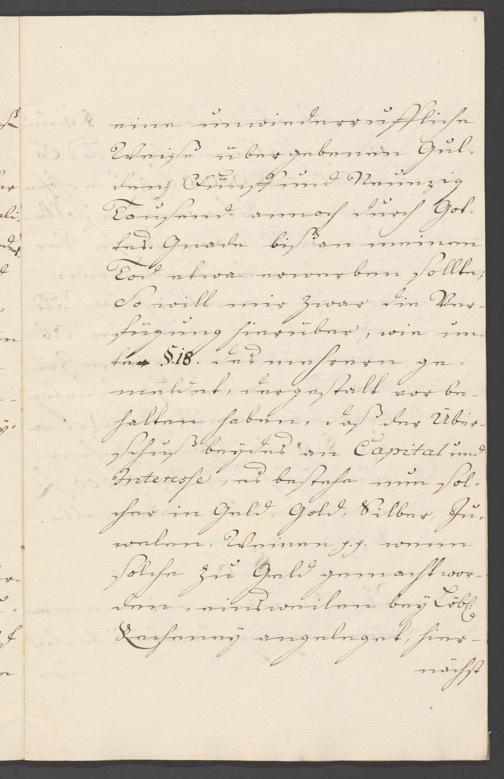 eine unwiederruffliche
Weise übergebenen Gul-
den Fünff und Neunzig
Tausend annoch durch Got-
tes Gnade biß an meinen
Tod etwa erwerben sollte;
So will mir zwar die Ver-
fügung hierüber, wie un-
ter §. 18. des mehrern ge-
meldet, dergestalt vorbe-
halten haben, daß der Über-
schuß beydes an Capital und
Interesse, es bestehe nun sol-
cher in Geld, Gold, Silber, Ju-
welen, Weinen pp. wenn
solche zu Geld gemacht wor-
den, einsweilen bey Löbl.
Recheney angeleget, hier-
nächst